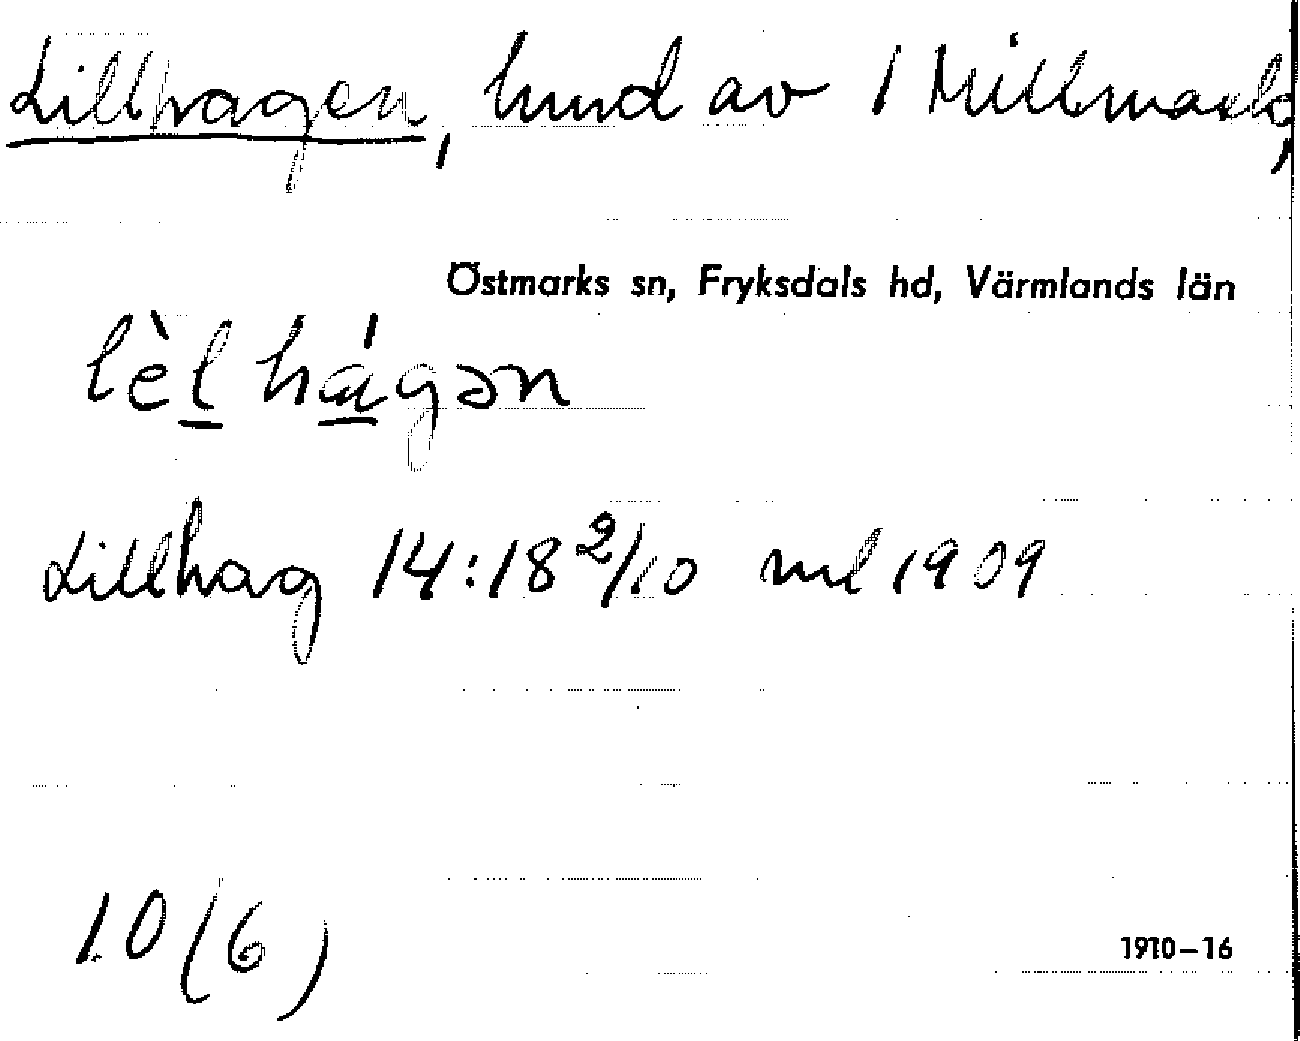 Lillhagen, hmd av 1 Millmark,
Östmarks sn, Fryksdals hd, Värmlands län
lèl hágən
Lillhag 14:18 2/10 ml 1909
10 (6)
1910–16